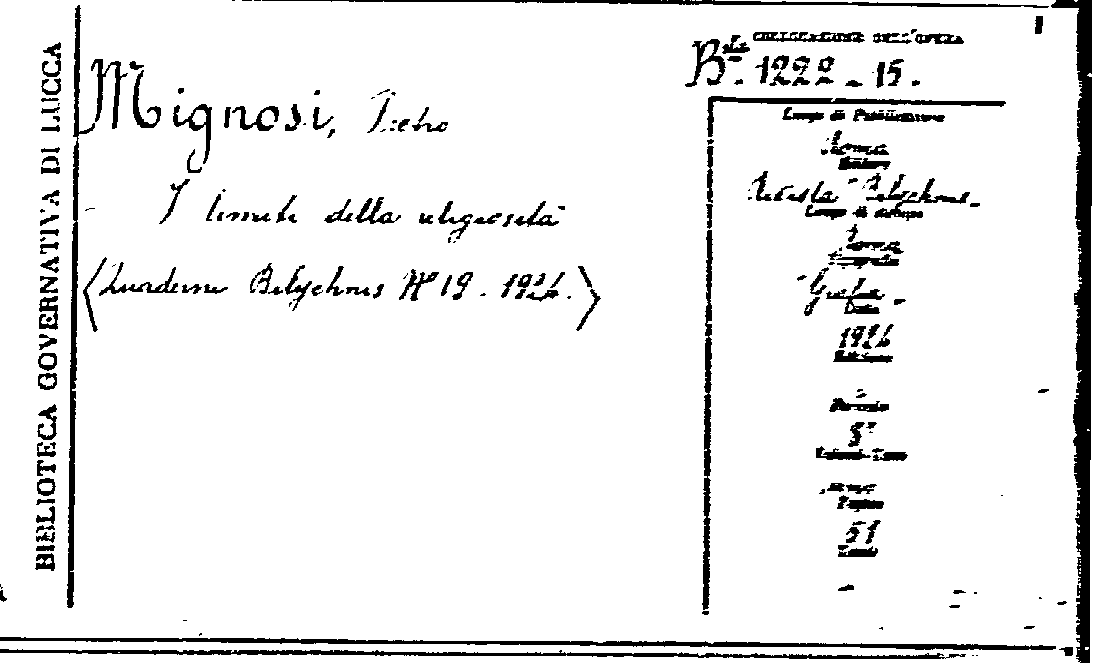 BIBLIOTECA GOVERNATIVA DI LUCCA
COLLOCAZIONE DELL'OPERA
B.ta 1222 - 15.
Mignosi, Pietro
I limiti della religiosità
(Quaderni Bilychnis N° 19 - 1924.)
Luogo di Pubblicazione
Roma
Editore
Rivista "Bilychnis"
Luogo di stampa
Roma
Tipografia
Data
1924
Edizione
-
Formato
8°
Volumi-Tomo
Pagine
51
Tavole
-